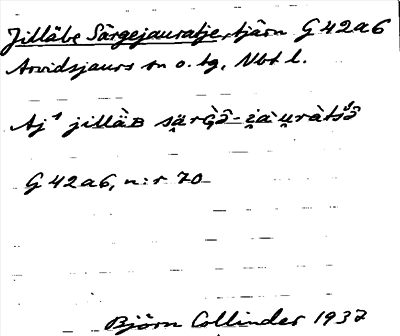 Jilläbe Särgejauratje, tjärn G 42 a 6
Arvidsjaurs sn o. tg, Nbt l.
Aj¹ jillàʙ
G 42 a 6, n:r 70
Björn Collinder 1937